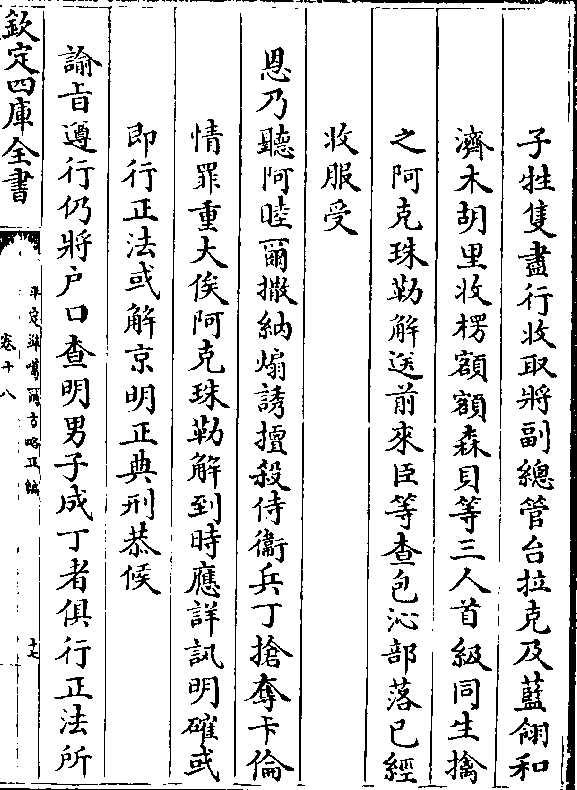 子牲隻盡行收取將副總管台拉克及藍翎和
濟木胡里收楞額額森貝等三人首級同生擒
之阿克珠勒解送前來臣等查包沁部落已經
收服受
恩乃聽阿睦爾撒納煽誘擅殺侍衞兵丁搶奪卡倫
情罪重大俟阿克珠勒解到時應詳訊明確或
即行正法或解京明正典刑恭候
諭旨遵行仍將户口查明男子成丁者俱行正法所
欽定四庫全書
平定準噶爾方略正編
卷十八
十七